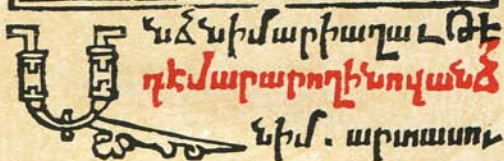 Անձն իմ արի աղաւ թէ
դէմ արարողին ով անձ
ն իմ . արտասու